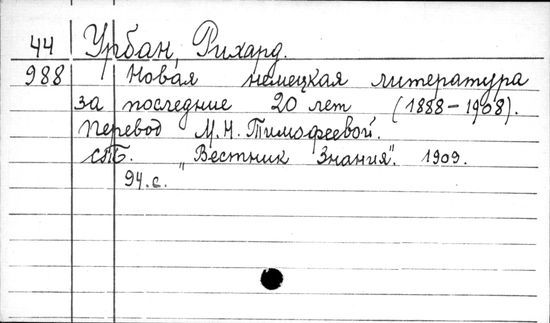 44 Урбан, Рихард.
988 Новая немецкая литература
за последние 20 лет (1888-1908).
Перевод М.Н. Тимофеевой.
СПБ. „Вестник Знания". 1909.
94.с.